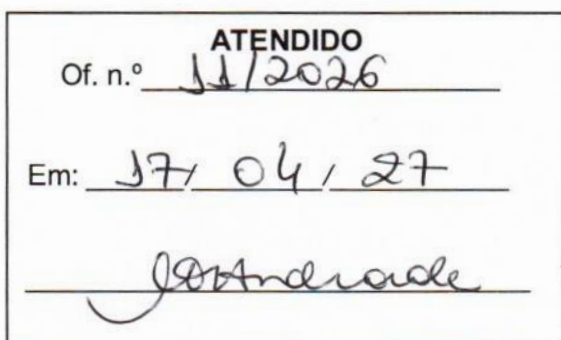 ATENDIDO
Of. n.º 11/2026
Em: 17/ 04 / 27
Andrade